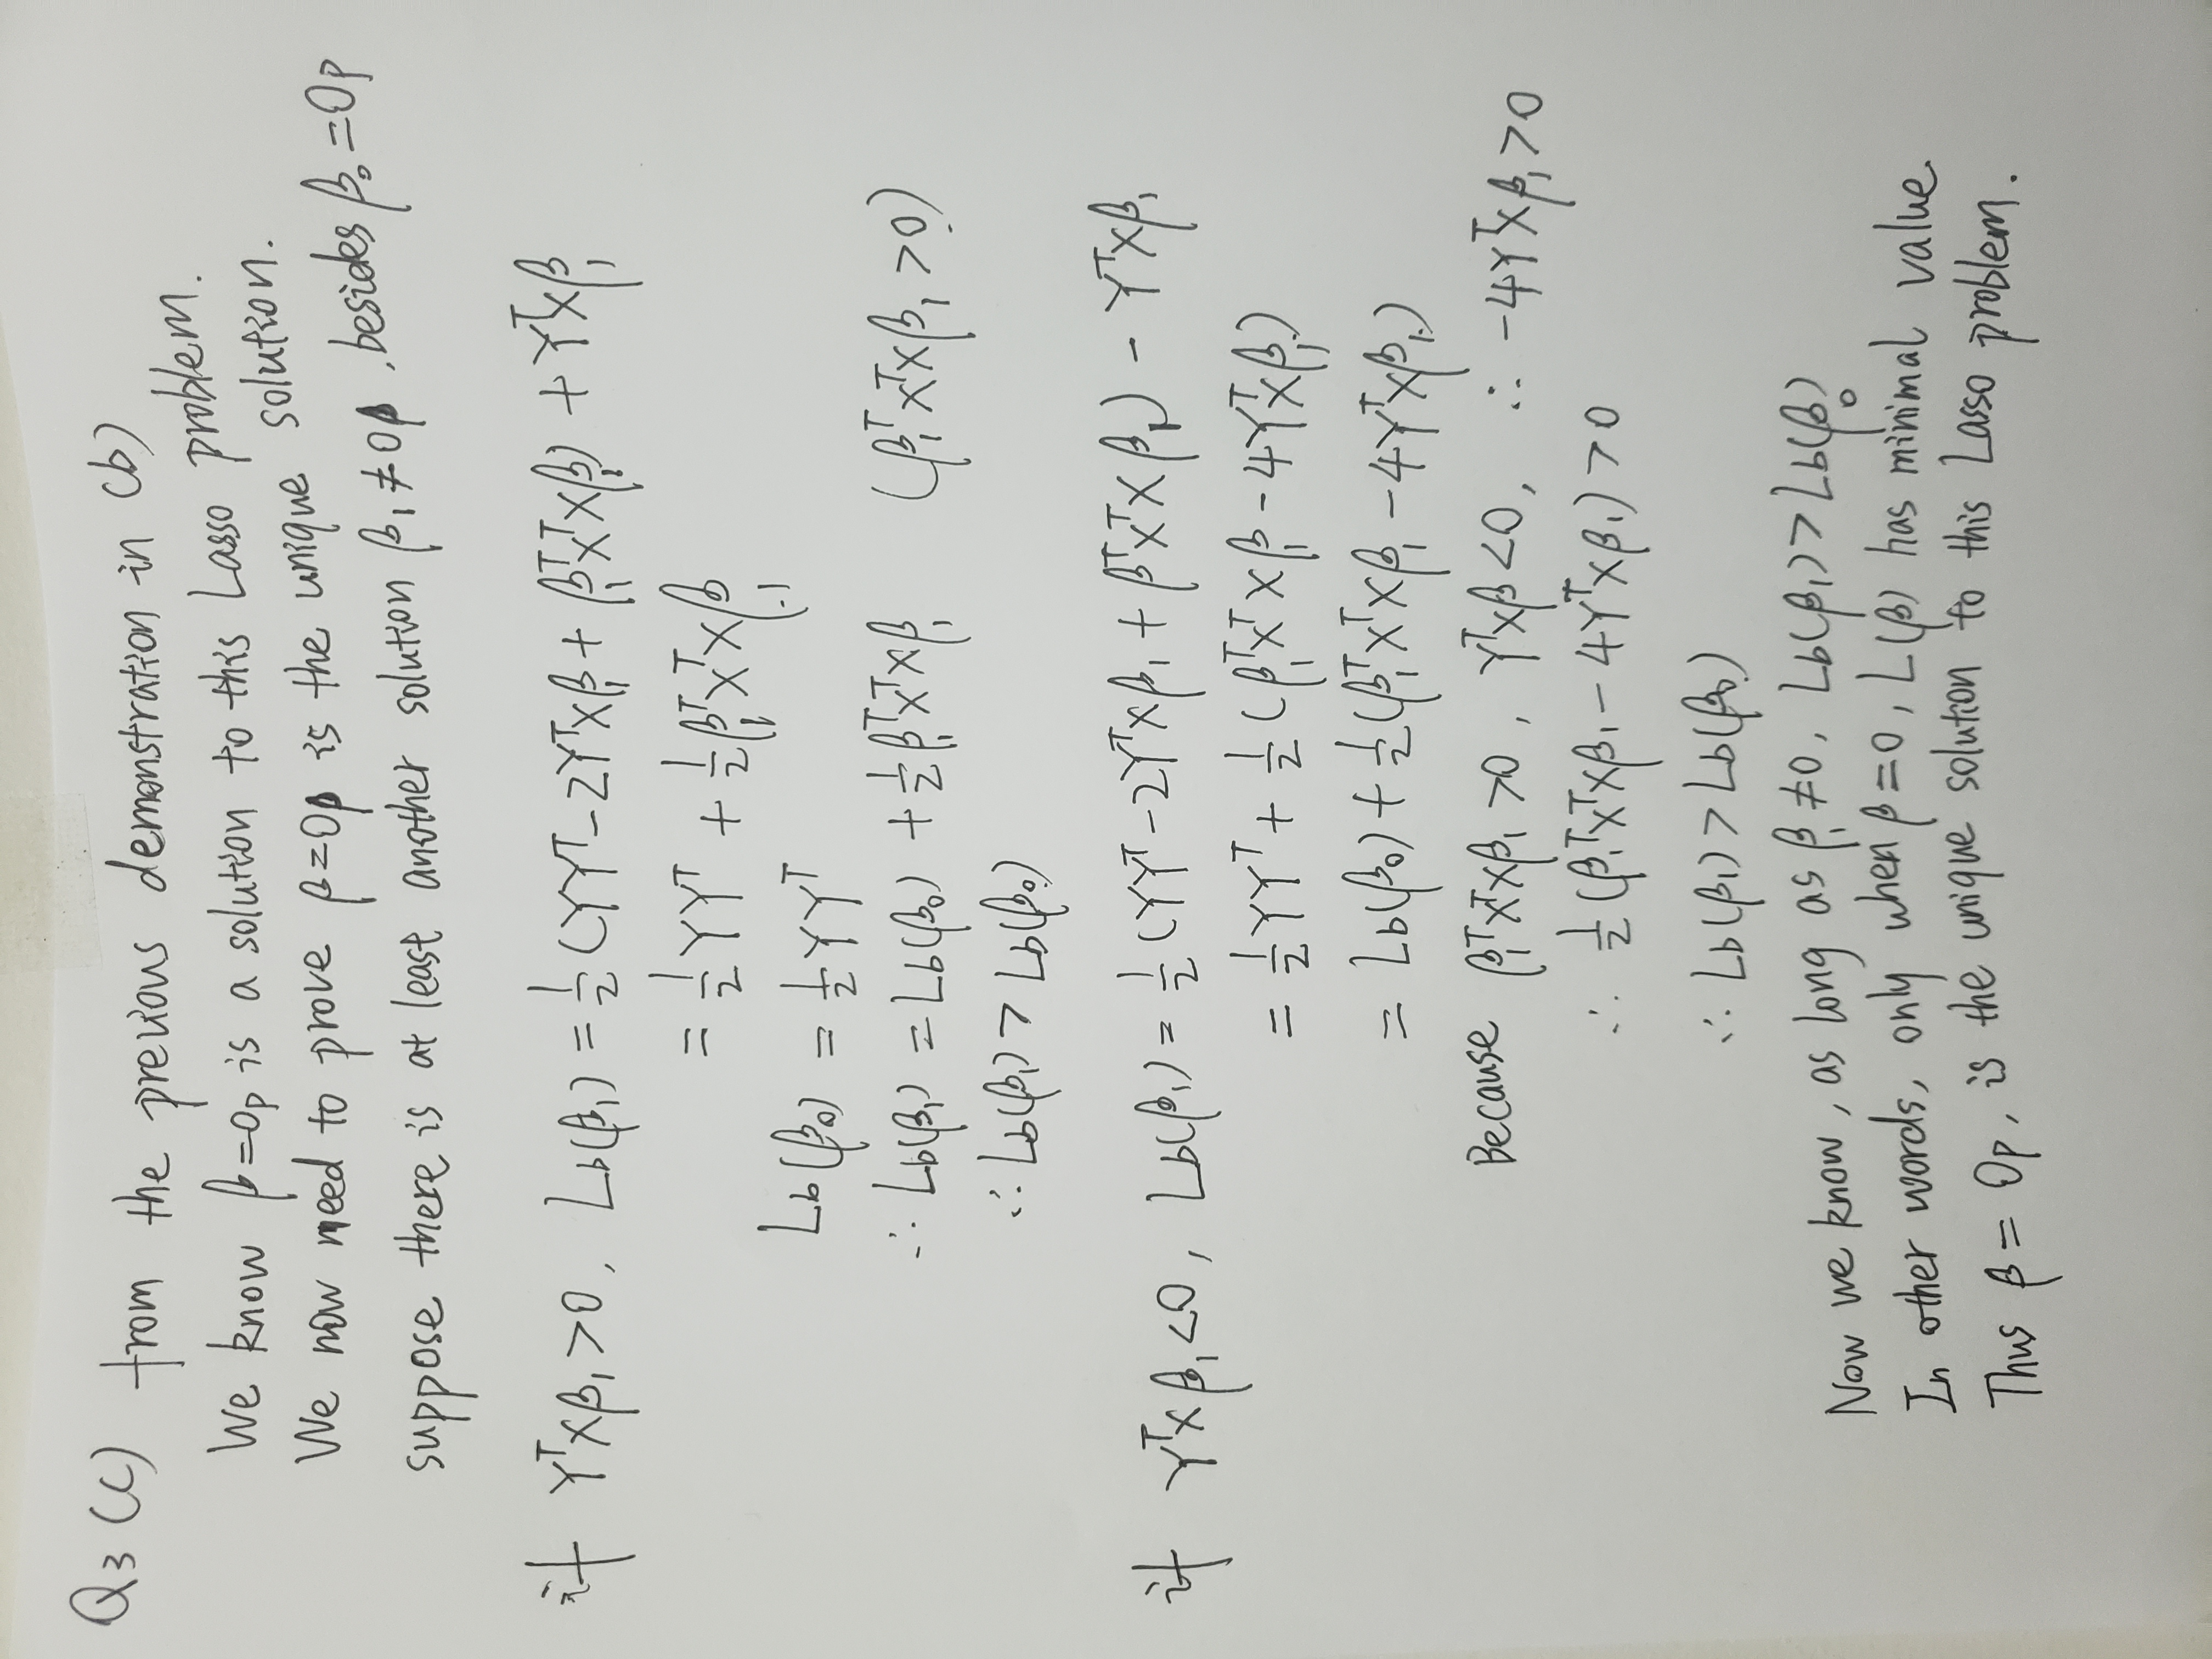 Q3 (C) from the previous demonstration in (b)
We know β=0p is a solution to this Lasso problem.
We now need to prove β=0p is the unique solution.
suppose there is at least another solution β₁≠0p, besides β₀=0p
if YᵀXβ₁>0, Lb(β₁) = ½(YYᵀ-2YᵀXβ₁+β₁ᵀXᵀXβ₁)+YᵀXβ₁
= ½YYᵀ + ½β₁ᵀXᵀXβ₁
Lb(β₀) = ½YYᵀ
∴ Lb(β₁) = Lb(β₀) + ½β₁ᵀXᵀXβ₁ (β₁ᵀXᵀXβ₁>0)
∴ Lb(β₁) > Lb(β₀)
if YᵀXβ₁<0, Lb(β₁) = ½(YYᵀ-2YᵀXβ₁+βᵀXᵀXβ₁) - YᵀXβ₁
= ½YYᵀ + ½(β₁ᵀXᵀXβ₁-4YᵀXβ₁)
= Lb(β₀) + ½(β₁ᵀXᵀXβ₁-4YᵀXβ₁)
Because β₁ᵀXᵀXβ₁>0, YᵀXβ<0, ∴ -4YᵀXβ₁>0
∴ ½(β₁ᵀXᵀXβ₁-4YᵀXβ₁)>0
∴ Lb(β₁) > Lb(β₀)
Now we know, as long as β₁≠0, Lb(β₁)>Lb(β₀)
In other words, only when β=0, L(β) has minimal value.
Thus β=0p, is the unique solution to this Lasso problem.